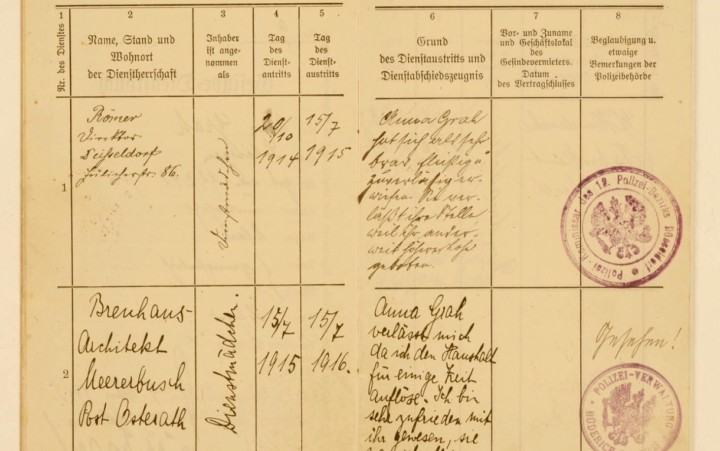 1
2
3
4
5
6
7
8
Nr. des Dienstes
Name, Stand und
Wohnort
der Dienstherrschaft
Inhaber
ist ange-
nommen
als
Tag
des
Dienst-
antritts
Tag
des
Dienst-
austritts
Grund
des Dienstaustritts und
Dienstabschiedszeugnis
Vor- und Zuname
und Geschäftslokal
des
Gesindevermieters.
Datum
des Vertragschlusses
Beglaubigung u.
etwaige
Bemerkungen der
Polizeibehörde
1
Römer
Direktor
Jülicherstr. 86.
20/10
1914
15/7
1915
Anna Grah
hat sich als sehr
brav, fleißig u
zuverlässig er-
wiesen. Sie ver-
läßt ihre Stelle
weil ihr ander-
weit höherer Lohn
geboten.
Polizei-Kommissar des 12. Polizei-Bezirks Düsseldorf
2
Brenhaus-
Architekt
Meererbusch
Post Osterath
Dienstmädchen.
15/7
1915
15/7
1916.
Anna Grah
verlässt mich
da ich den Haushalt
für einige Zeit
auflöse. Ich bin
sehr zufrieden mit
ihr gewesen, sie
Gesehen!
POLIZEI-VERWALTUNG